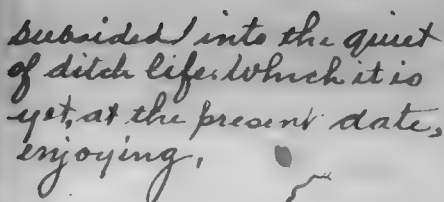 subsided into the quiet
of ditch life. Which it is
yet, at the present date,
enjoying.